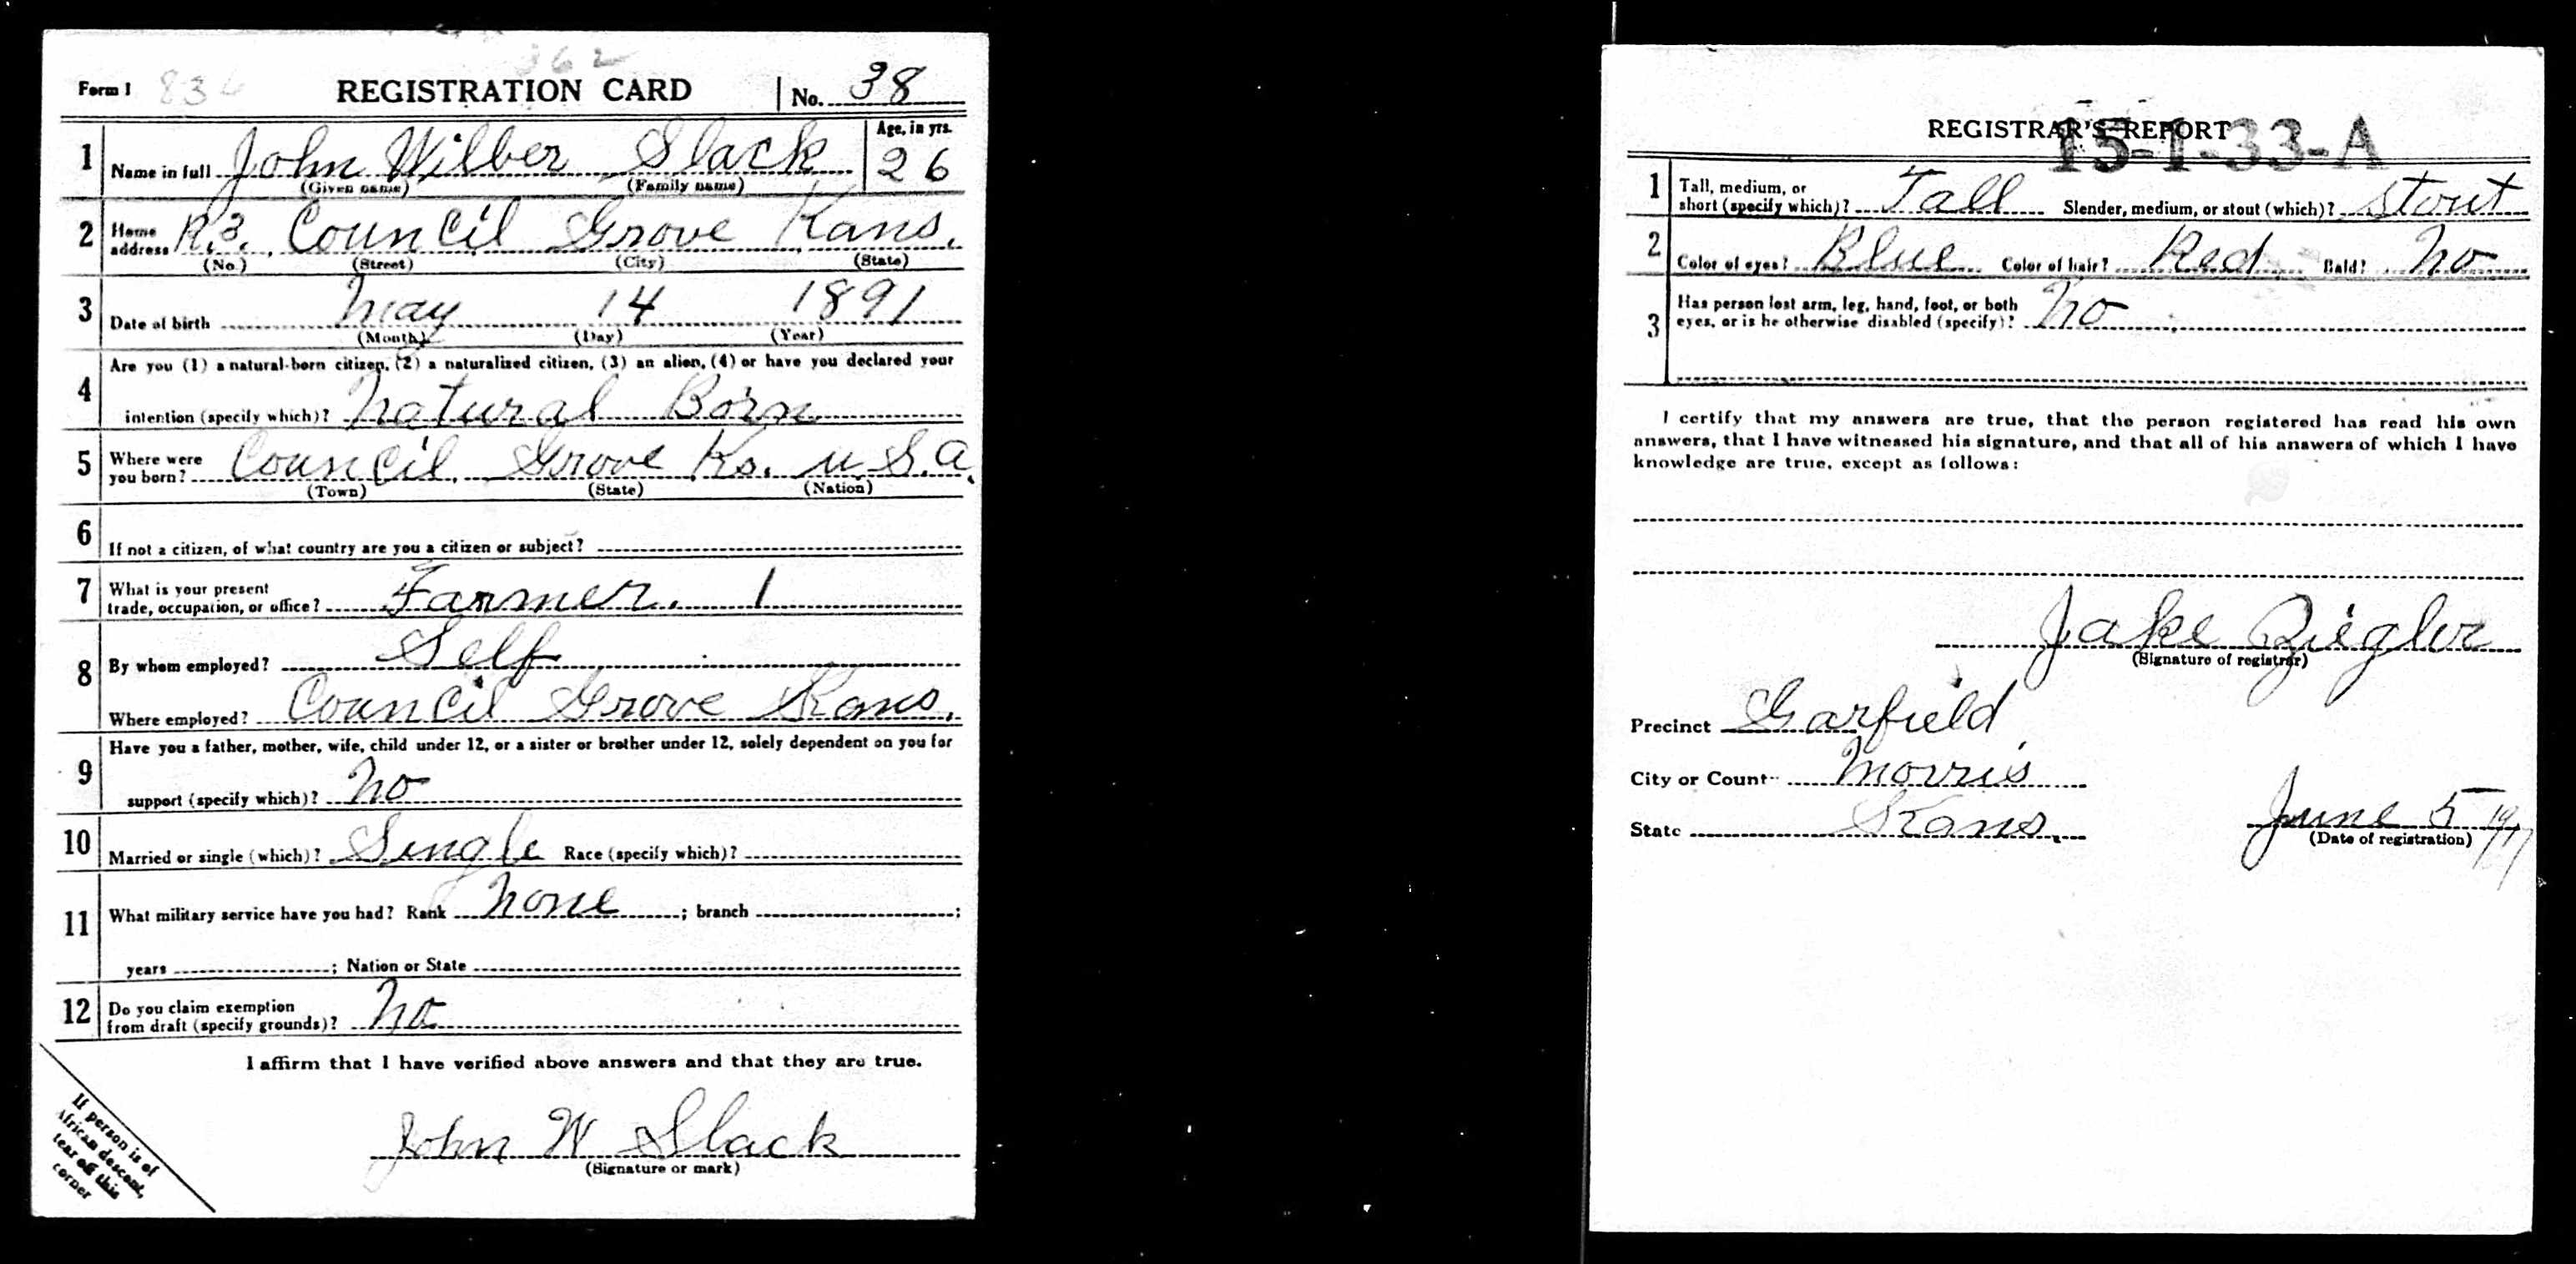 362
Form 1 REGISTRATION CARD No. 38
1 Name in full John Wilber Slack Age, in yrs. 26
(Given name) (Family name)
2 Home address R.3. Council Grove Kans.
(No.) (Street) (City) (State)
3 Date of birth May 14 1891
(Month) (Day) (Year)
4 Are you (1) a natural-born citizen, (2) a naturalized citizen, (3) an alien, (4) or have you declared your
intention (specify which)? Natural Born
5 Where were you born? Council Grove Ks. U S. A.
(Town) (State) (Nation)
6 If not a citizen, of what country are you a citizen or subject?
7 What is your present
trade, occupation, or office? Farmer. 1
8 By whom employed? Self
Where employed? Council Grove Kans.
9 Have you a father, mother, wife, child under 12, or a sister or brother under 12, solely dependent on you for
support (specify which)? No
10 Married or single (which)? Single Race (specify which)?
11 What military service have you had? Rank None ; branch ;
years ; Nation or State
12 Do you claim exemption
from draft (specify grounds)? No
I affirm that I have verified above answers and that they are true.
John W Slack
(Signature or mark)
If person is of
African descent,
tear off this
corner
REGISTRAR'S REPORT
15-1-33-A
1 Tall, medium, or
short (specify which)? Tall Slender, medium, or stout (which)? Stout
2 Color of eyes? Blue Color of hair? Red Bald? No
3 Has person lost arm, leg, hand, foot, or both
eyes, or is he otherwise disabled (specify)? No
I certify that my answers are true, that the person registered has read his own
answers, that I have witnessed his signature, and that all of his answers of which I have
knowledge are true, except as follows:
Jake Ziegler
(Signature of registrar)
Precinct Garfield
City or Count Morris
State Kans. June 5 1917
(Date of registration)